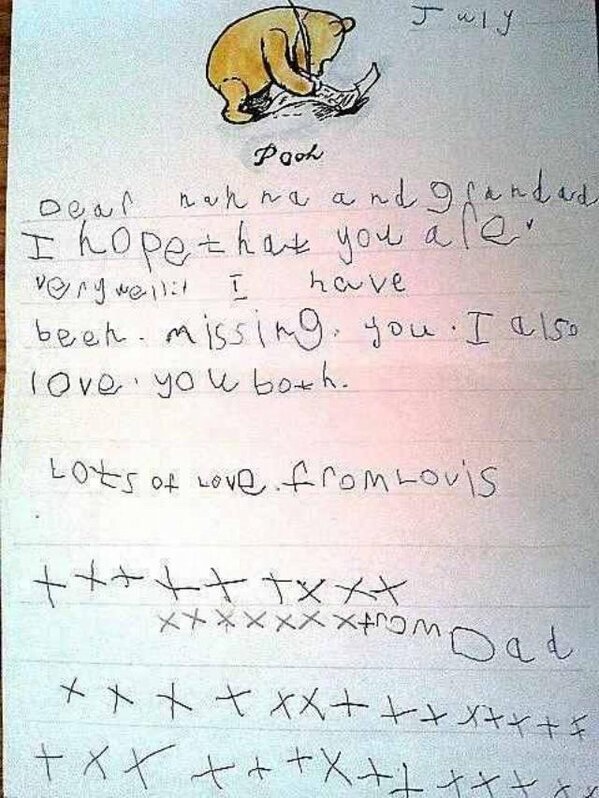 July
Pooh
Dear nanna and grandad
I hope that you are.
very well: I have
been. missing. you. I also
love. you both.
Lots of Love. from Louis
+ x + + + + x x x
x x x x x x x from Dad
x x x + x x + + + x + x + x
+ x x + + + x + + + x + x x